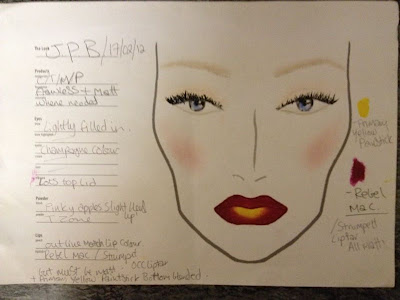 The Look JPB/17/02/12
Products
Flawless + Matt
where needed
Eyes
Lightly filled in.
Champagne Colour
Lots top Lid
Powder
Pinky apples slight
T Zone
Lips
out-line Match Lip Colour
Rebel Mac / Strumpet
OCC Liptar
Lips must be matt
+ Primary Yellow Paintstick Bottom blended.
- Primary
Yellow
Paintstick
- Rebel
Mac.
/Strumpet
Liptar
All Matt!